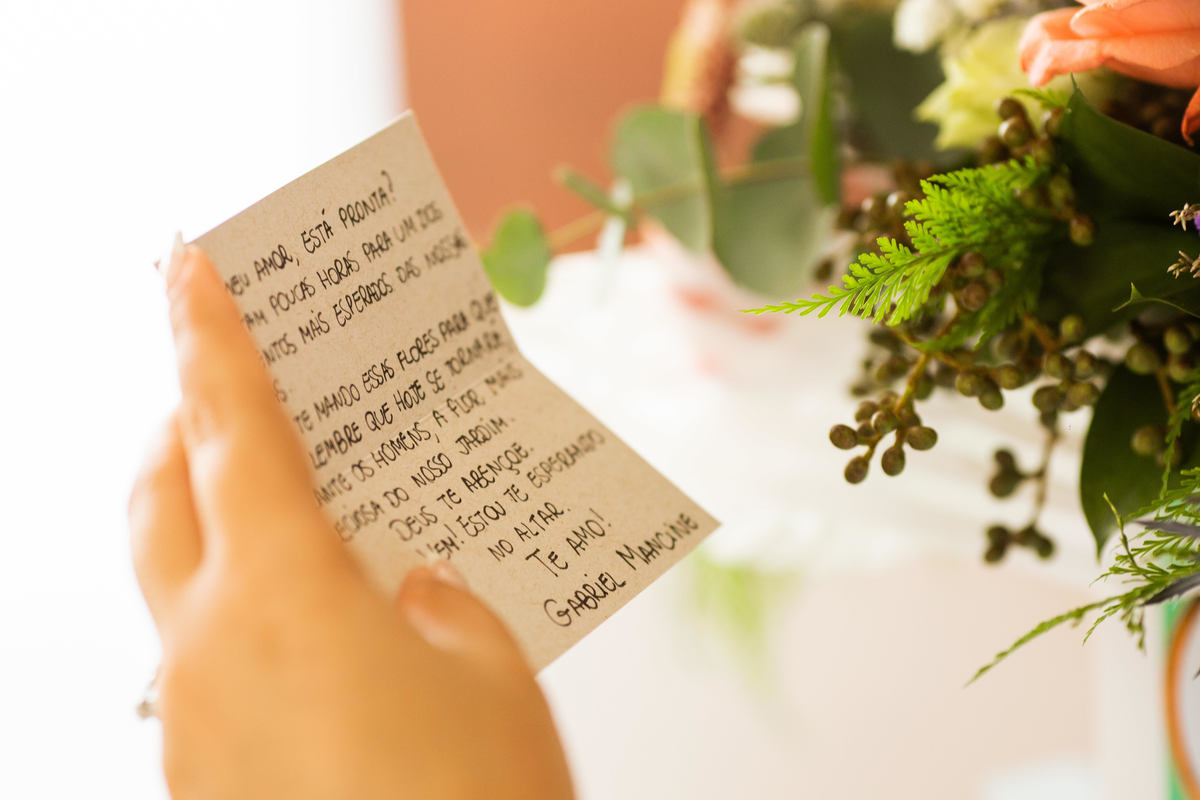 MEU AMOR, ESTÁ PRONTA?
AM POUCAS HORAS PARA UM DOS
NTOS MAIS ESPERADOS DAS NOSSAS
S
TE MANDO ESSAS FLORES PARA QUE
LEMBRE QUE HOJE SE TORNARÁ
ANTE OS HOMENS, A FLOR MAIS
ECIOSA DO NOSSO JARDIM.
DEUS TE ABENÇOE.
VEM! ESTOU TE ESPERANDO
NO ALTAR.
TE AMO!
GABRIEL MANCINE